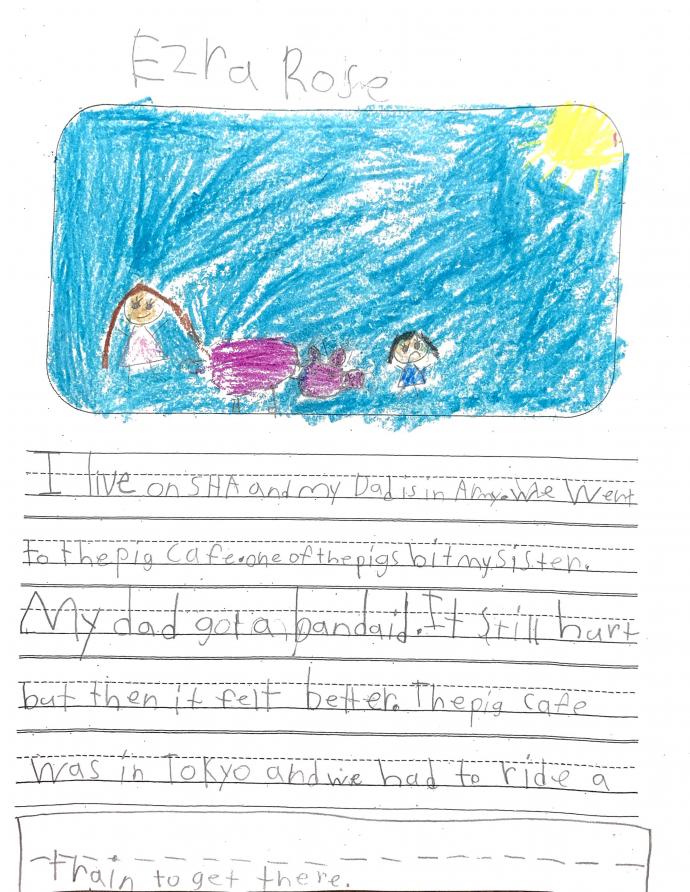 Ezra Rose
I live on SHA and my Dad is in Army. We Went
to the pig Cafe. one of the pigs bit my sister.
My dad got a bandaid. It still hurt
but then it felt better. The pig cafe
was in Tokyo and we had to ride a
train to get there.